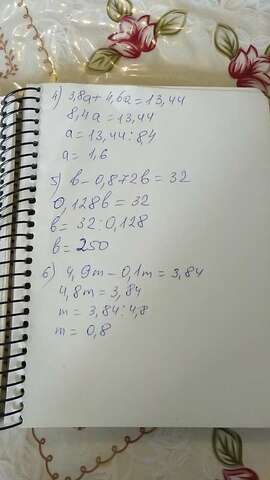 4) 3,8a + 4,6a = 13,44
8,4a = 13,44
a = 13,44 : 8,4
a = 1,6
5) b - 0,872b = 32
0,128b = 32
b = 32 : 0,128
b = 250
6) 4,9m - 0,1m = 3,84
4,8m = 3,84
m = 3,84 : 4,8
m = 0,8